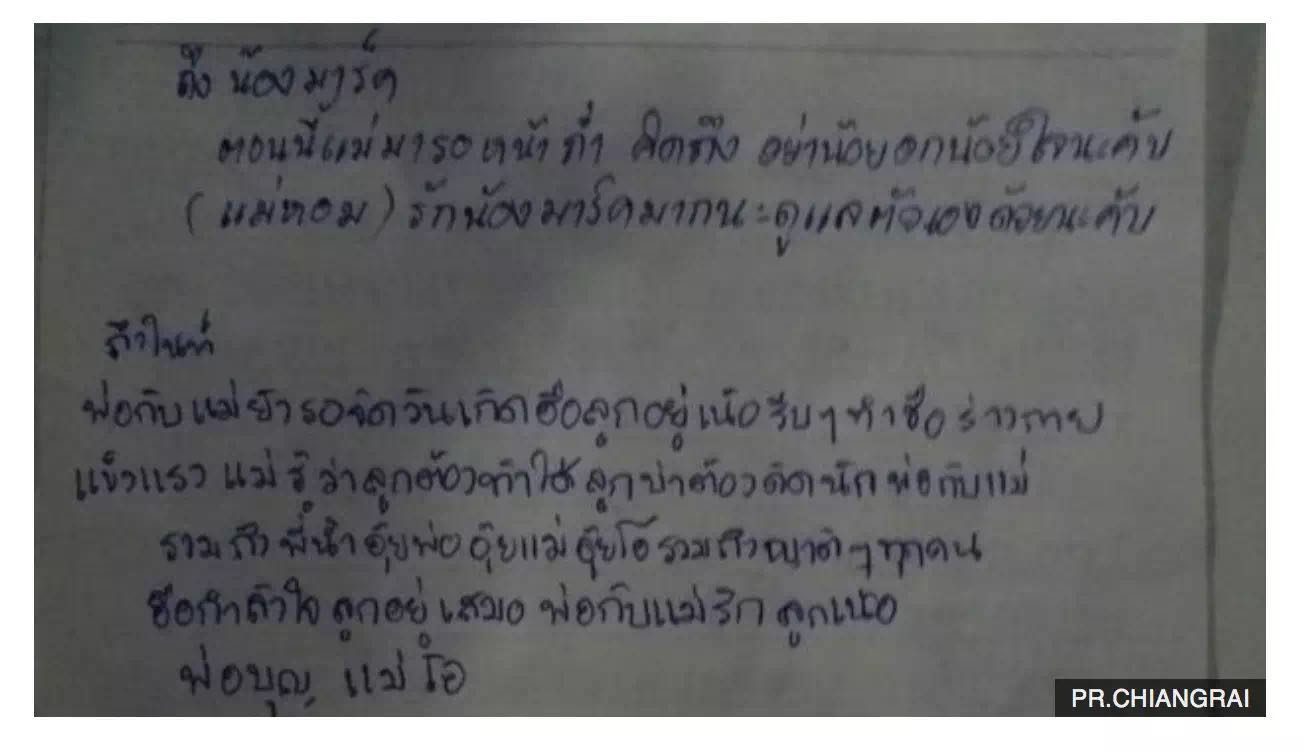 ถึง น้องมาร์ค
ตอนนี้แม่มารอหน้าถ้ำ คิดถึง อย่าน้อยอกน้อยใจนะคับ
(แม่หอม) รักน้องมาร์คมากนะดูแลตัวเองด้วยนะคับ
ถึงไนท์
พ่อกับแม่ยังรอจัดวันเกิดฮือลูกอยู่เน้อ รีบๆ ทำ ร่างกาย
แข็งแรง แม่รู้ว่าลูกต้องทำได้ ลูกบ่าต้องคิดนัก พ่อกับแม่
รวมถึง พี่น้ำ อุ๊ยพ่อ อุ๊ยแม่ อุ๊ยโอ้ รวมถึงญาติๆ ทุกคน
ฮือกำลังใจ ลูกอยู่เสมอ พ่อกับแม่รัก ลูกเนอ
พ่อบุญ แม่
PR.CHIANGRAI